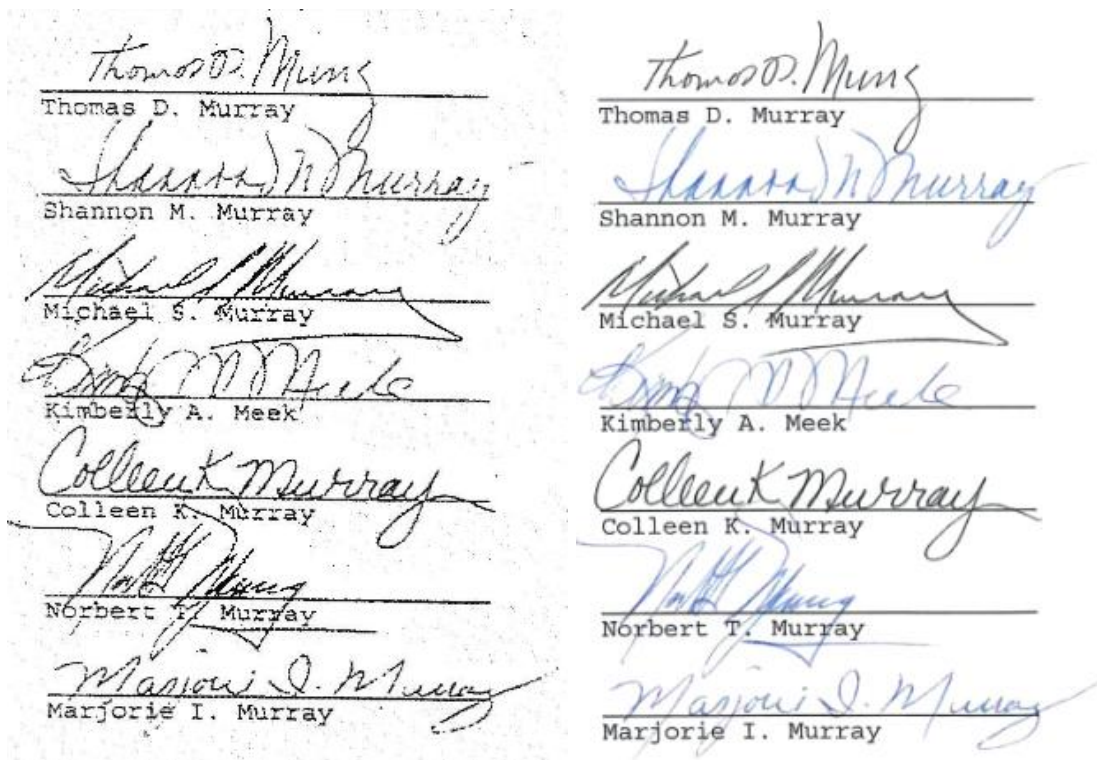 Thomas D. Murray
Thomas D. Murray
Shannon M Murray
Shannon M. Murray
Michael S Murray
Michael S. Murray
Kimberly A. Meek
Colleen K Murray
Colleen K. Murray
Norbert T. Murray
Marjorie I. Murray
Marjorie I. Murray
Thomas D. Murray
Thomas D. Murray
Shannon M Murray
Shannon M. Murray
Michael S Murray
Michael S. Murray
Kimberly A. Meek
Colleen K Murray
Colleen K. Murray
Norbert T. Murray
Marjorie I. Murray
Marjorie I. Murray